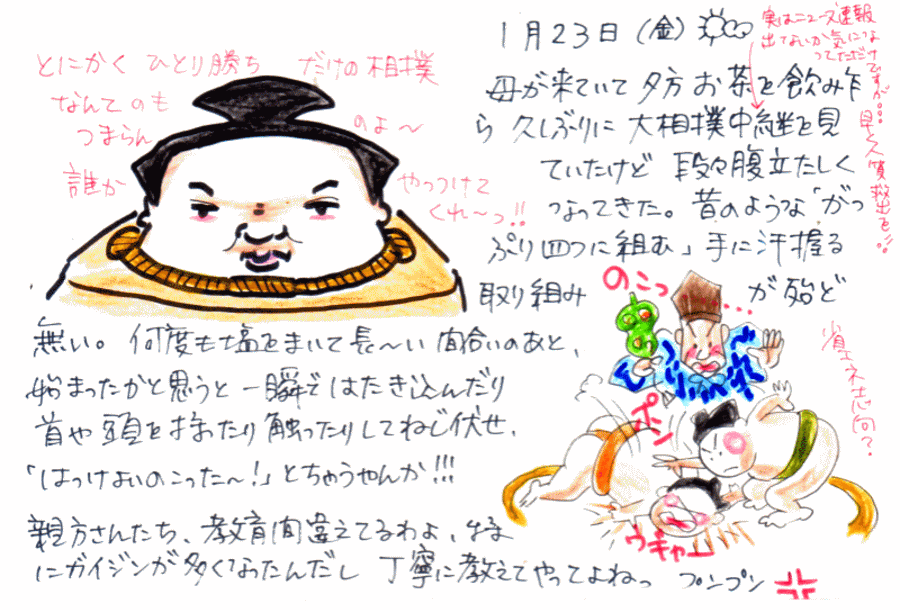 1月23日(金)
実はニュース速報
出てないか気にな
ってただけ
ですが。。。
早く人質救出を!!
とにかく ひとり勝ち だけの相撲
なんてのも
つまらん のよ〜
誰か やっつけて
くれ〜っ!!
母が来ていて夕方お茶を飲み乍
ら 久しぶりに 大相撲中継を見
ていたけど 段々腹立たしく
なってきた。昔のような「がっ
ぷり四つに組む」手に汗握る
取り組み が殆ど
のこっ...
無い。何度も塩をまいて長〜い間合いのあと、
始まったかと思うと 一瞬ではたき込んだり
首や頭を押さえたり触ったりしてねじ伏せ、
「はっけよいのこった〜!」とちゃうやんか!!!
省エネ志向?
ポン
ウギャー
親方さんたち、教育間違えてるわよ、
にガイジンが多くなったんだし 丁寧に教えてやってよねっ プンプン